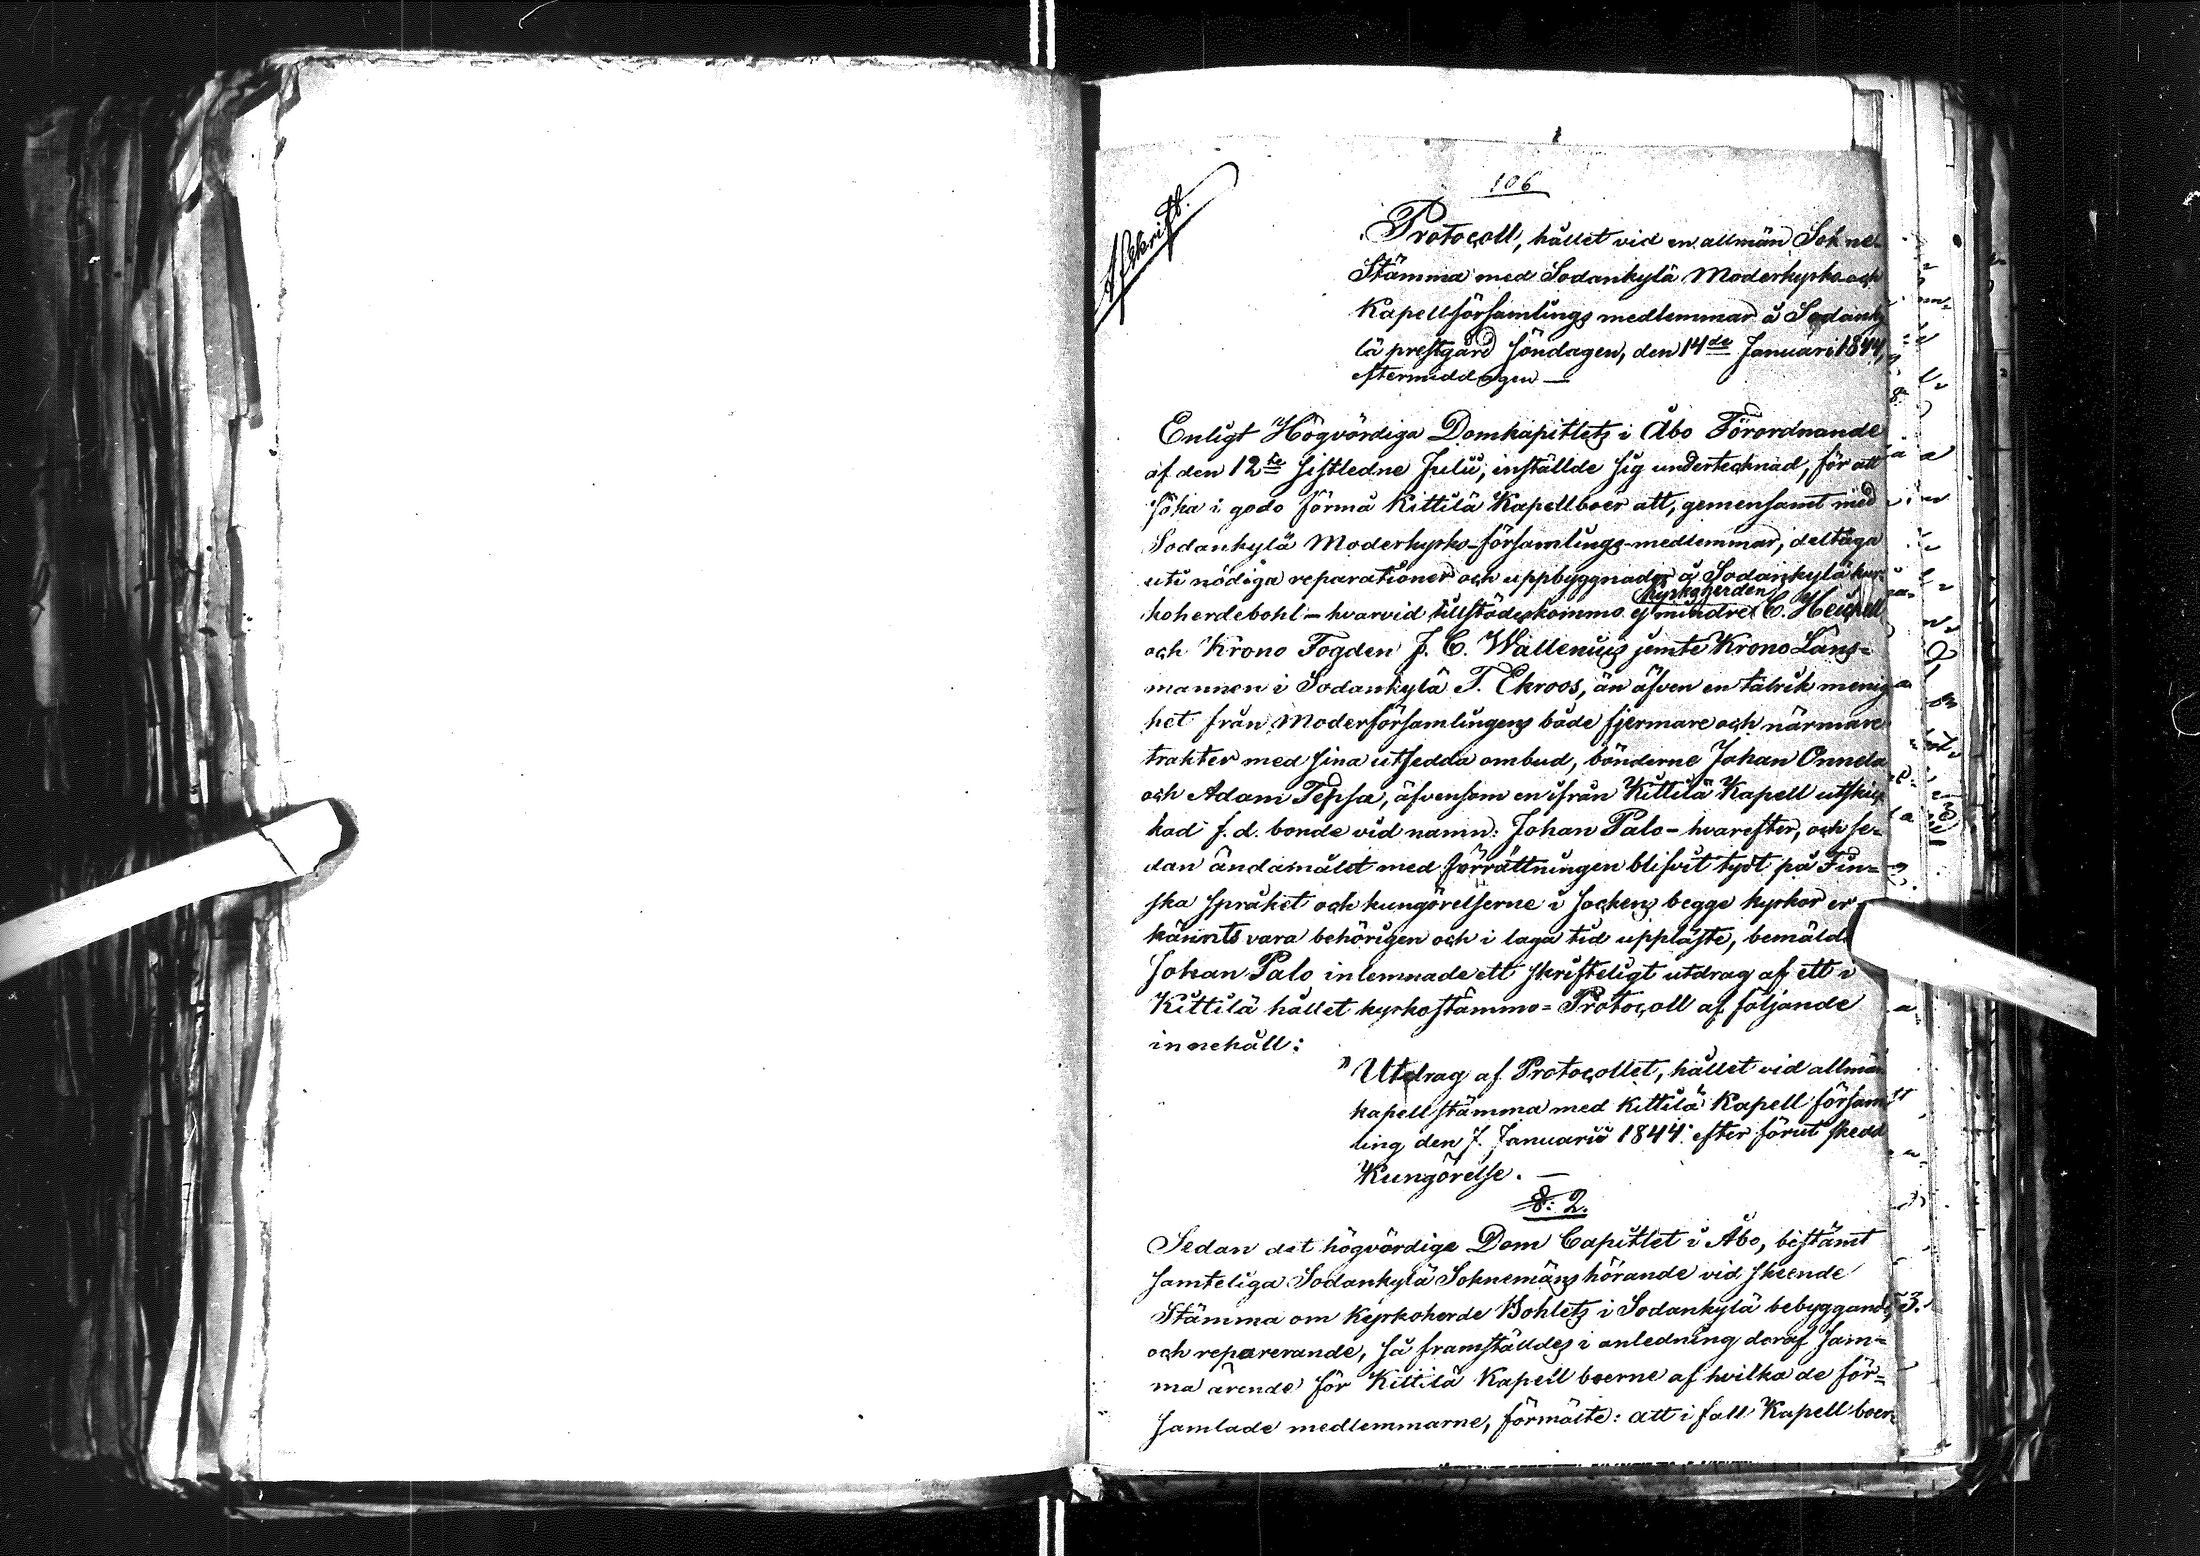 106
Afskrift.
Protocoll, hållet vid en allmän Sokne-
Stämma med Sodankylä Moderkyrko och
Kapellförsamlings medlemmar å Sodanky
lä prestgård söndagen, den 14de Januari 1844,
eftermiddagen —
Enligt Högvördiga Domkapitlets i Åbo Förordnande
af den 12te sistledne Julii, inställde sig undertecknad, för att
söka i godo förmå Kittilä Kapellboer att, gemensamt med
Sodankylä Moderkyrko-församlings-medlemmar, deltaga
uti nödiga reparationer och uppbyggnader å Sodankylä kyr-
koherdebohl – hvarvid tillstädeskommo ej mindre kyrkoherden C. Heickell
och Krono Fogden J. C. Wallenius jemte Krono Läns-
mannen i Sodankylä F. Ekroos, än äfven en talrik menig
het från Moderförsamlingens både fjermare och närmare
trakter med sina utsedda ombud, bönderne Johan Onnela
och Adam Tepsa, äfvensom en ifrån Kittilä Kapell utskic
kad f. d. bonde vid namn: Johan Palo – hvarefter, och se-
dan ändamålet med förrättningen blifvit tydt på Fin-
ska språket och kungörelserne i sockens begge kyrkor er-
kännts vara behörigen och i laga tid uppläste, bemäldte
Johan Palo inlemnade ett skrifteligt utdrag af ett i
Kittilä hållet kyrkostämmo-Protocoll af följande
innehåll:
"Utdrag af Protocollet, hållet vid allmän
kapellstämma med Kittilä Kapell försam
ling den 7. Januarii 1844. efter förut skedd
Kungörelse. —
§: 2.
Sedan det högvördige Dom Capitlet i Åbo, bestämt
samteliga Sodankylä Soknemäns hörande vid skeende
Stämma om Kyrkoherde Bohlets i Sodankylä bebyggande
och reparerande, så framställdes i anledning deraf sam-
ma ärende för Kittilä Kapell boerne af hvilka de för-
samlade medlemmarne, förmälte: att i fall Kapell boer